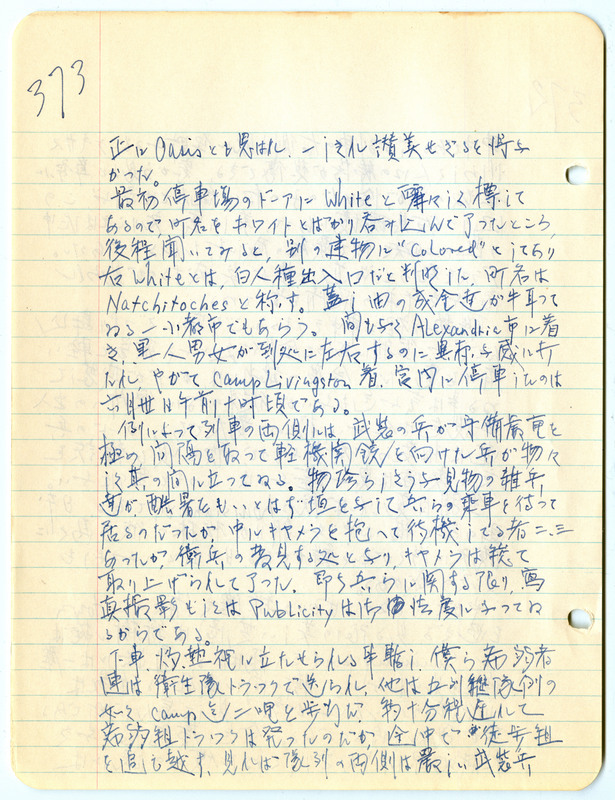 373
正に Oasis とも思はれ、一しきれ讃美せざるを得な
かった。
最初停車場のドーアに White と麗々しく標して
あるので、町名をホワイトとばかり呑み込んで了ったところ、
後程聞いてみると、別の建物に "Colored" としてあり
右 White とは、白人種出入口だと判明した。町名は
Natchitoches と称す。蓋し油の成金連が牛耳って
ゐる一小都市でもあらう。間もなく Alexandria 市に着
き、黒人男女が到処に左右するのに異様な感に打
たれ、やがて Camp Livingston 着、営内に停車したのは
六月卅日午前十時頃である。
例によって列車の両側には武装の兵が守備厳重を
極め、間隔を取って軽機関銃を向けた兵が物々し
く其の間に立ってゐる。物珍らしさうな見物の雑兵
連が酷暑をもいとはず垣を与して兵らの乗車を待って
居るのだったが、中にキヤメラを抱へて待機してる者二、三
あったが、衛兵の発見する処となり、キヤメラは総て
取り上げられて了った。即ち兵らに関する限り、寫
真撮影もしくは Publicity は御法度になってゐ
るからである。
下車、灼熱裡に立たせられる半時し、僕ら病弱者
連は衛生隊トラックで送られ、他は五列縦隊例の
如く、camp迄二哩を歩行だ、約十分程遅れて
病弱組トラックは発ったのだが、途中で徒歩組
を追ひ越す。見れば隊列の両側は厳しい武装兵